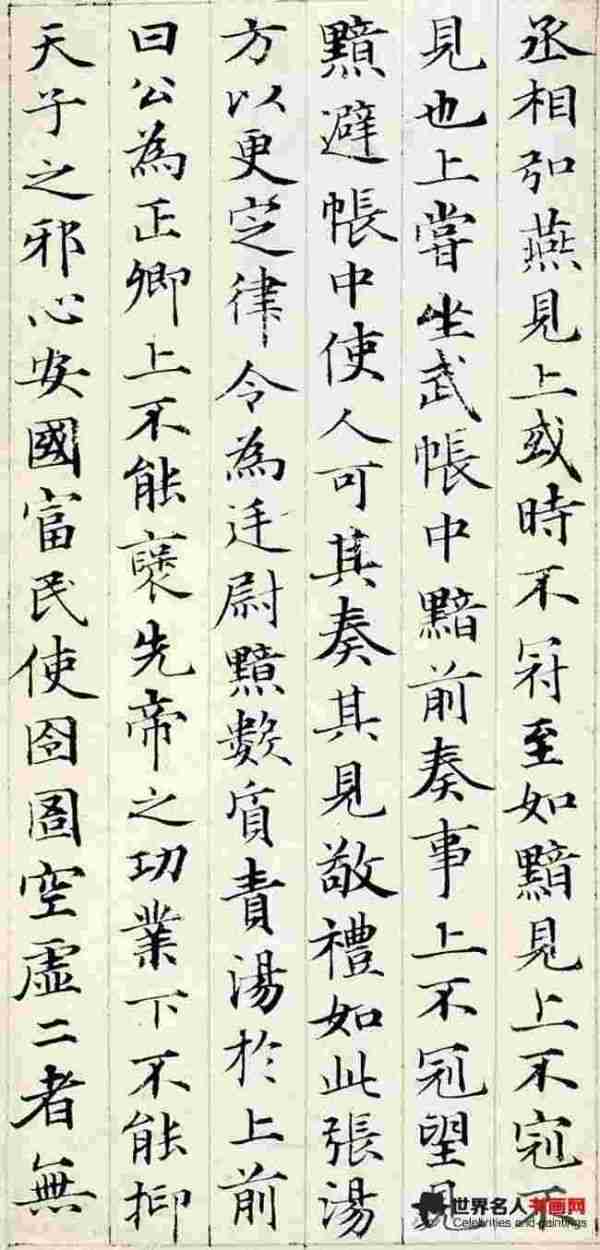 丞相弘燕見上或時不冠至如黯見上不冠不
見也上嘗坐武帳中黯前奏事上不冠望見
黯避帳中使人可其奏其見敬禮如此張湯
方以更定律令為廷尉黯數質責湯於上前
曰公為正卿上不能褒先帝之功業下不能抑
天子之邪心安國富民使囹圄空虛二者無
世界名人书画网
Celebrities and paintings